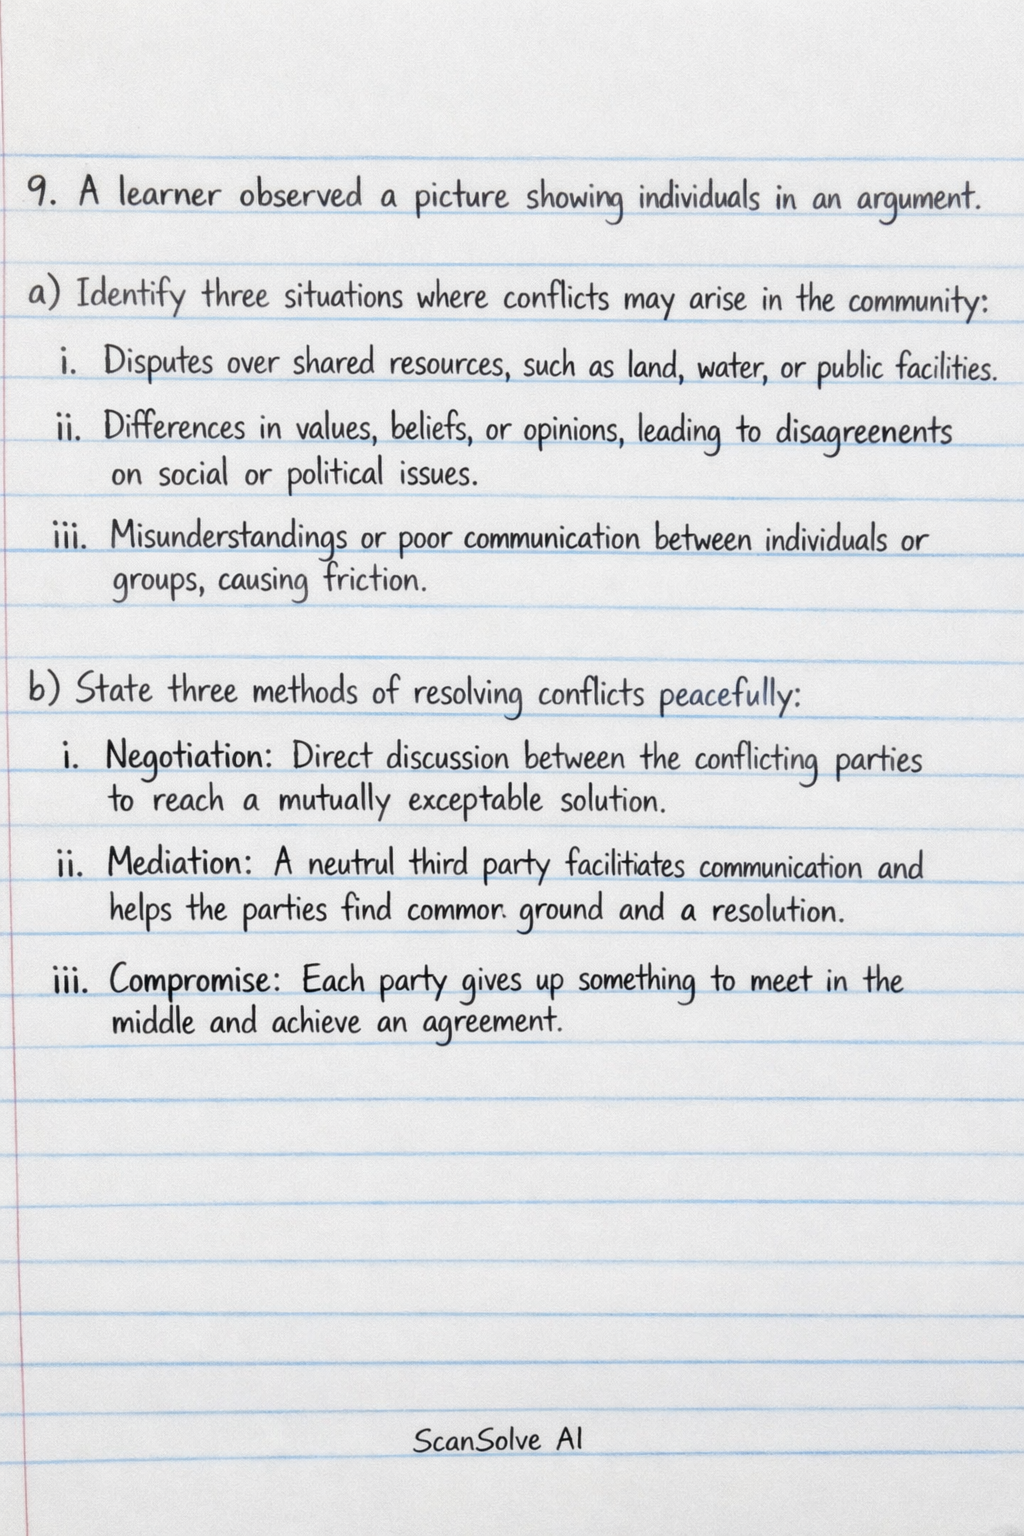 9. A learner observed a picture showing individuals in an argument.
a) Identify three situations where conflicts may arise in the community:
i. Disputes over shared resources, such as land, water, or public facilities.
ii. Differences in values, beliefs, or opinions, leading to disagreenents
on social or political issues.
iii. Misunderstandings or poor communication between individuals or
groups, causing friction.
b) State three methods of resolving conflicts peacefully:
i. Negotiation: Direct discussion between the conflicting parties
to reach a mutually exceptable solution.
ii. Mediation: A neutrul third party facilitiates communication and
helps the parties find common ground and a resolution.
iii. Compromise: Each party gives up something to meet in the
middle and achieve an agreement.
ScanSolve AI